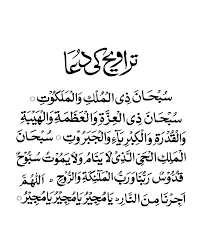 تراویح کی دعا
سُبْحَانَ ذِی الْمُلْکِ وَالْمَلَکُوْتِ ○
سُبْحَانَ ذِی الْعِزَّةِ وَالْعَظَمَةِ وَالْهَیْبَةِ
وَالْقُدْرَةِ وَالْکِبْرِیَآءِ وَالْجَبَرُوْتِ ○ سُبْحَانَ
الْمَلِکِ الْحَیِّ الَّذِیْ لَا یَنَامُ وَلَا یَمُوْتُ سُبُّوْحٌ
قُدُّوْسٌ رَبُّنَا وَرَبُّ الْمَلٰٓئِکَةِ وَالرُّوْحِ ○ اَللّٰهُمَّ
اَجِرْنَا مِنَ النَّارِ ○ یَا مُجِیْرُ یَا مُجِیْرُ یَا مُجِیْرُ ○